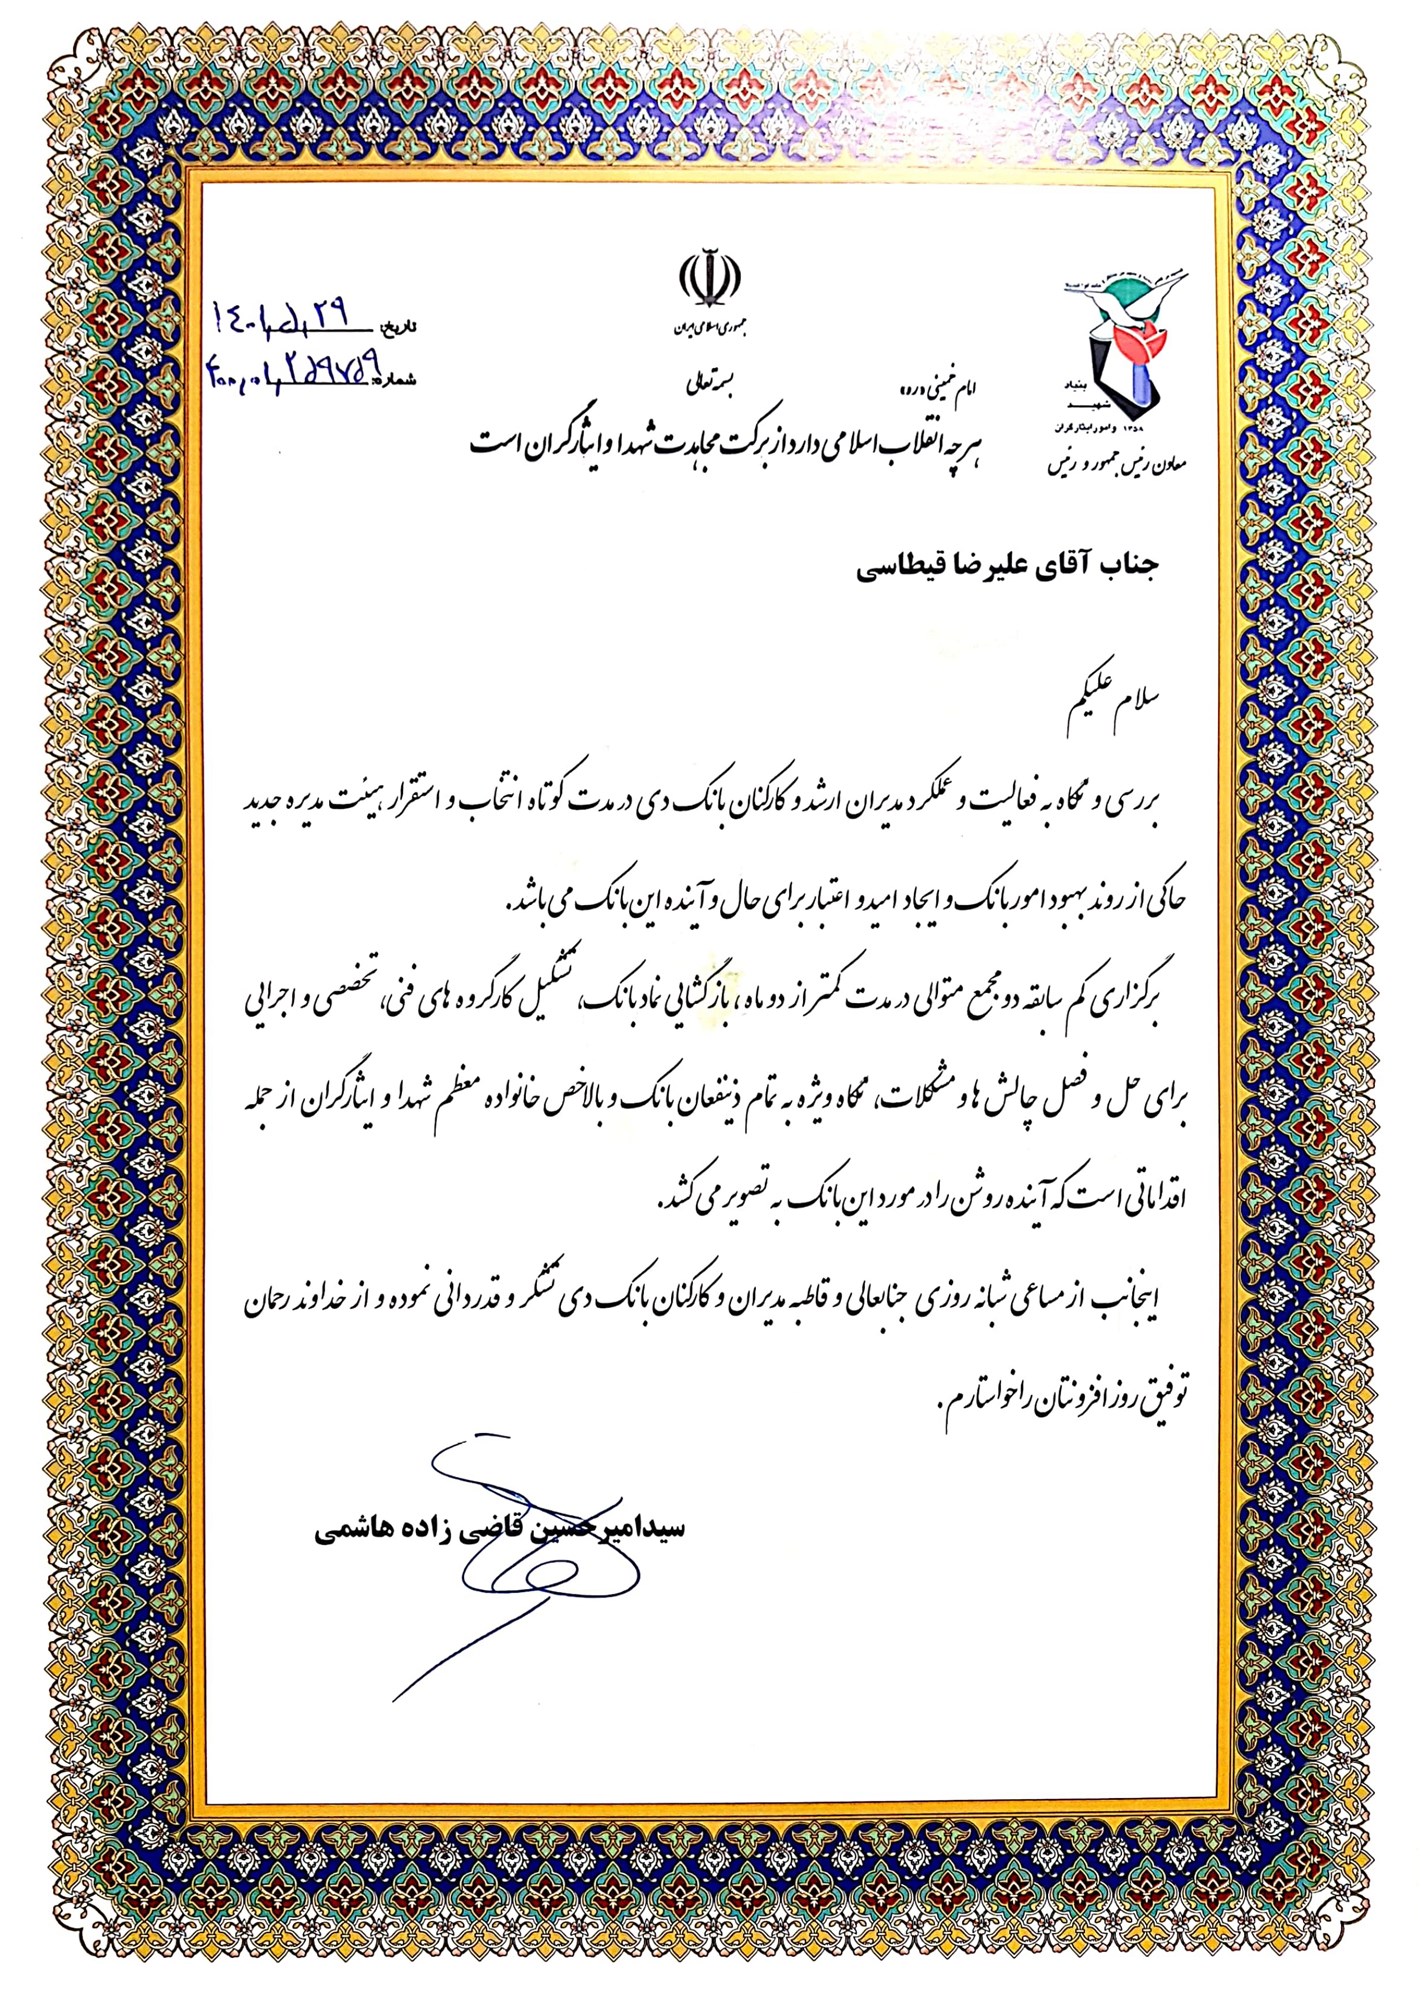 جمهوری اسلامی ایران
بسمه تعالی
تاریخ:
شماره:
بنیاد
شهید
و امور ایثارگران ۱۳۵۸
معاون رئیس جمهور و رئیس
امام خمینی «ره»
هرچه انقلاب اسلامی دارد از برکت مجاهدت شهدا و ایثارگران است
جناب آقای علیرضا قیطاسی
سلام علیکم
بررسی و نگاه به فعالیت و عملکرد مدیران ارشد و کارکنان بانک دی در مدت کوتاه انتخاب و استقرار هیئت مدیره جدید
حاکی از روند بهبود امور بانک و ایجاد امید و اعتبار برای حال و آینده این بانک می باشد.
برگزاری کم سابقه دو مجمع متوالی در مدت کمتر از دو ماه، بازگشایی نماد بانک، تشکیل کارگروه های فنی، تخصصی و اجرایی
برای حل و فصل چالش ها و مشکلات، نگاه ویژه به تمام ذینفعان بانک و بالاخص خانواده معظم شهدا و ایثارگران از جمله
اقداماتی است که آینده روشن را در مورد این بانک به تصویر می کشد.
اینجانب از مساعی شبانه روزی جنابعالی و قاطبه مدیران و کارکنان بانک دی تشکر و قدردانی نموده و از خداوند رحمان
توفیق روز افزونتان را خواستارم.
سیدامیرحسین قاضی زاده هاشمی